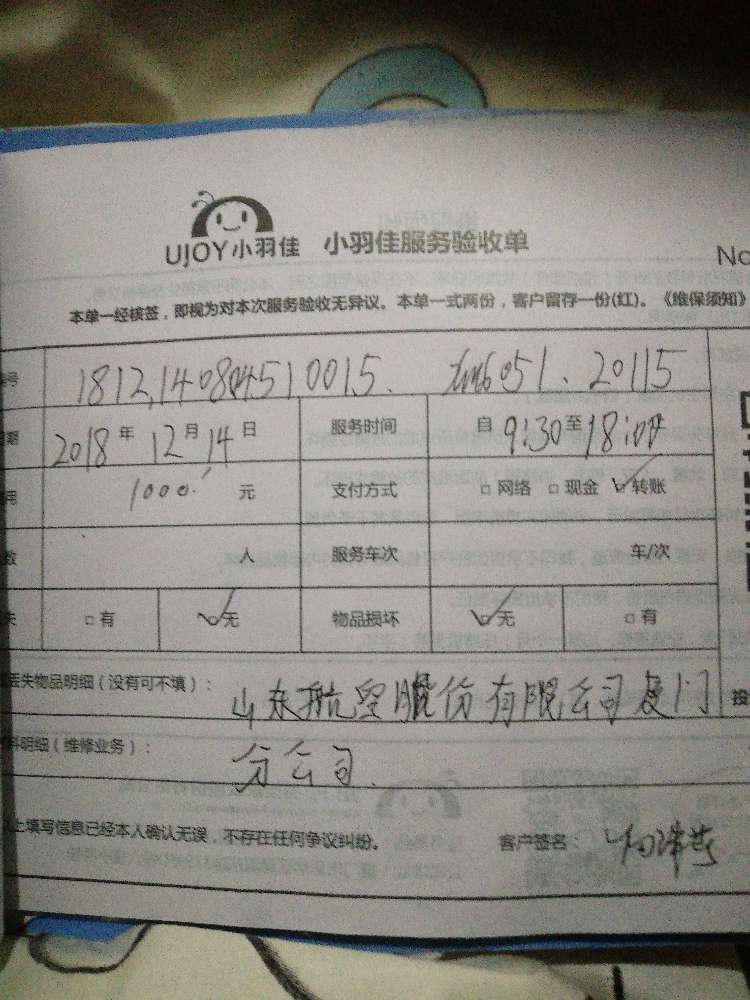 UJOY小羽佳 小羽佳服务验收单
No
本单一经核签，即视为对本次服务验收无异议。本单一式两份，客户留存一份(红)。《维保须知》
号 1812.140804510015.
期 2018年12月14日 服务时间 自9:30至18:00
用 1000 元 支付方式 □网络 □现金 ☑转账
数 人 服务车次 车/次
失 □有 ☑无 物品损坏 ☑无 □有
丢失物品明细（没有可不填）： 山东航空股份有限公司厦门
料明细（维修业务）： 分公司.
投
上填写信息已经本人确认无误，不存在任何争议纠纷。 客户签名：